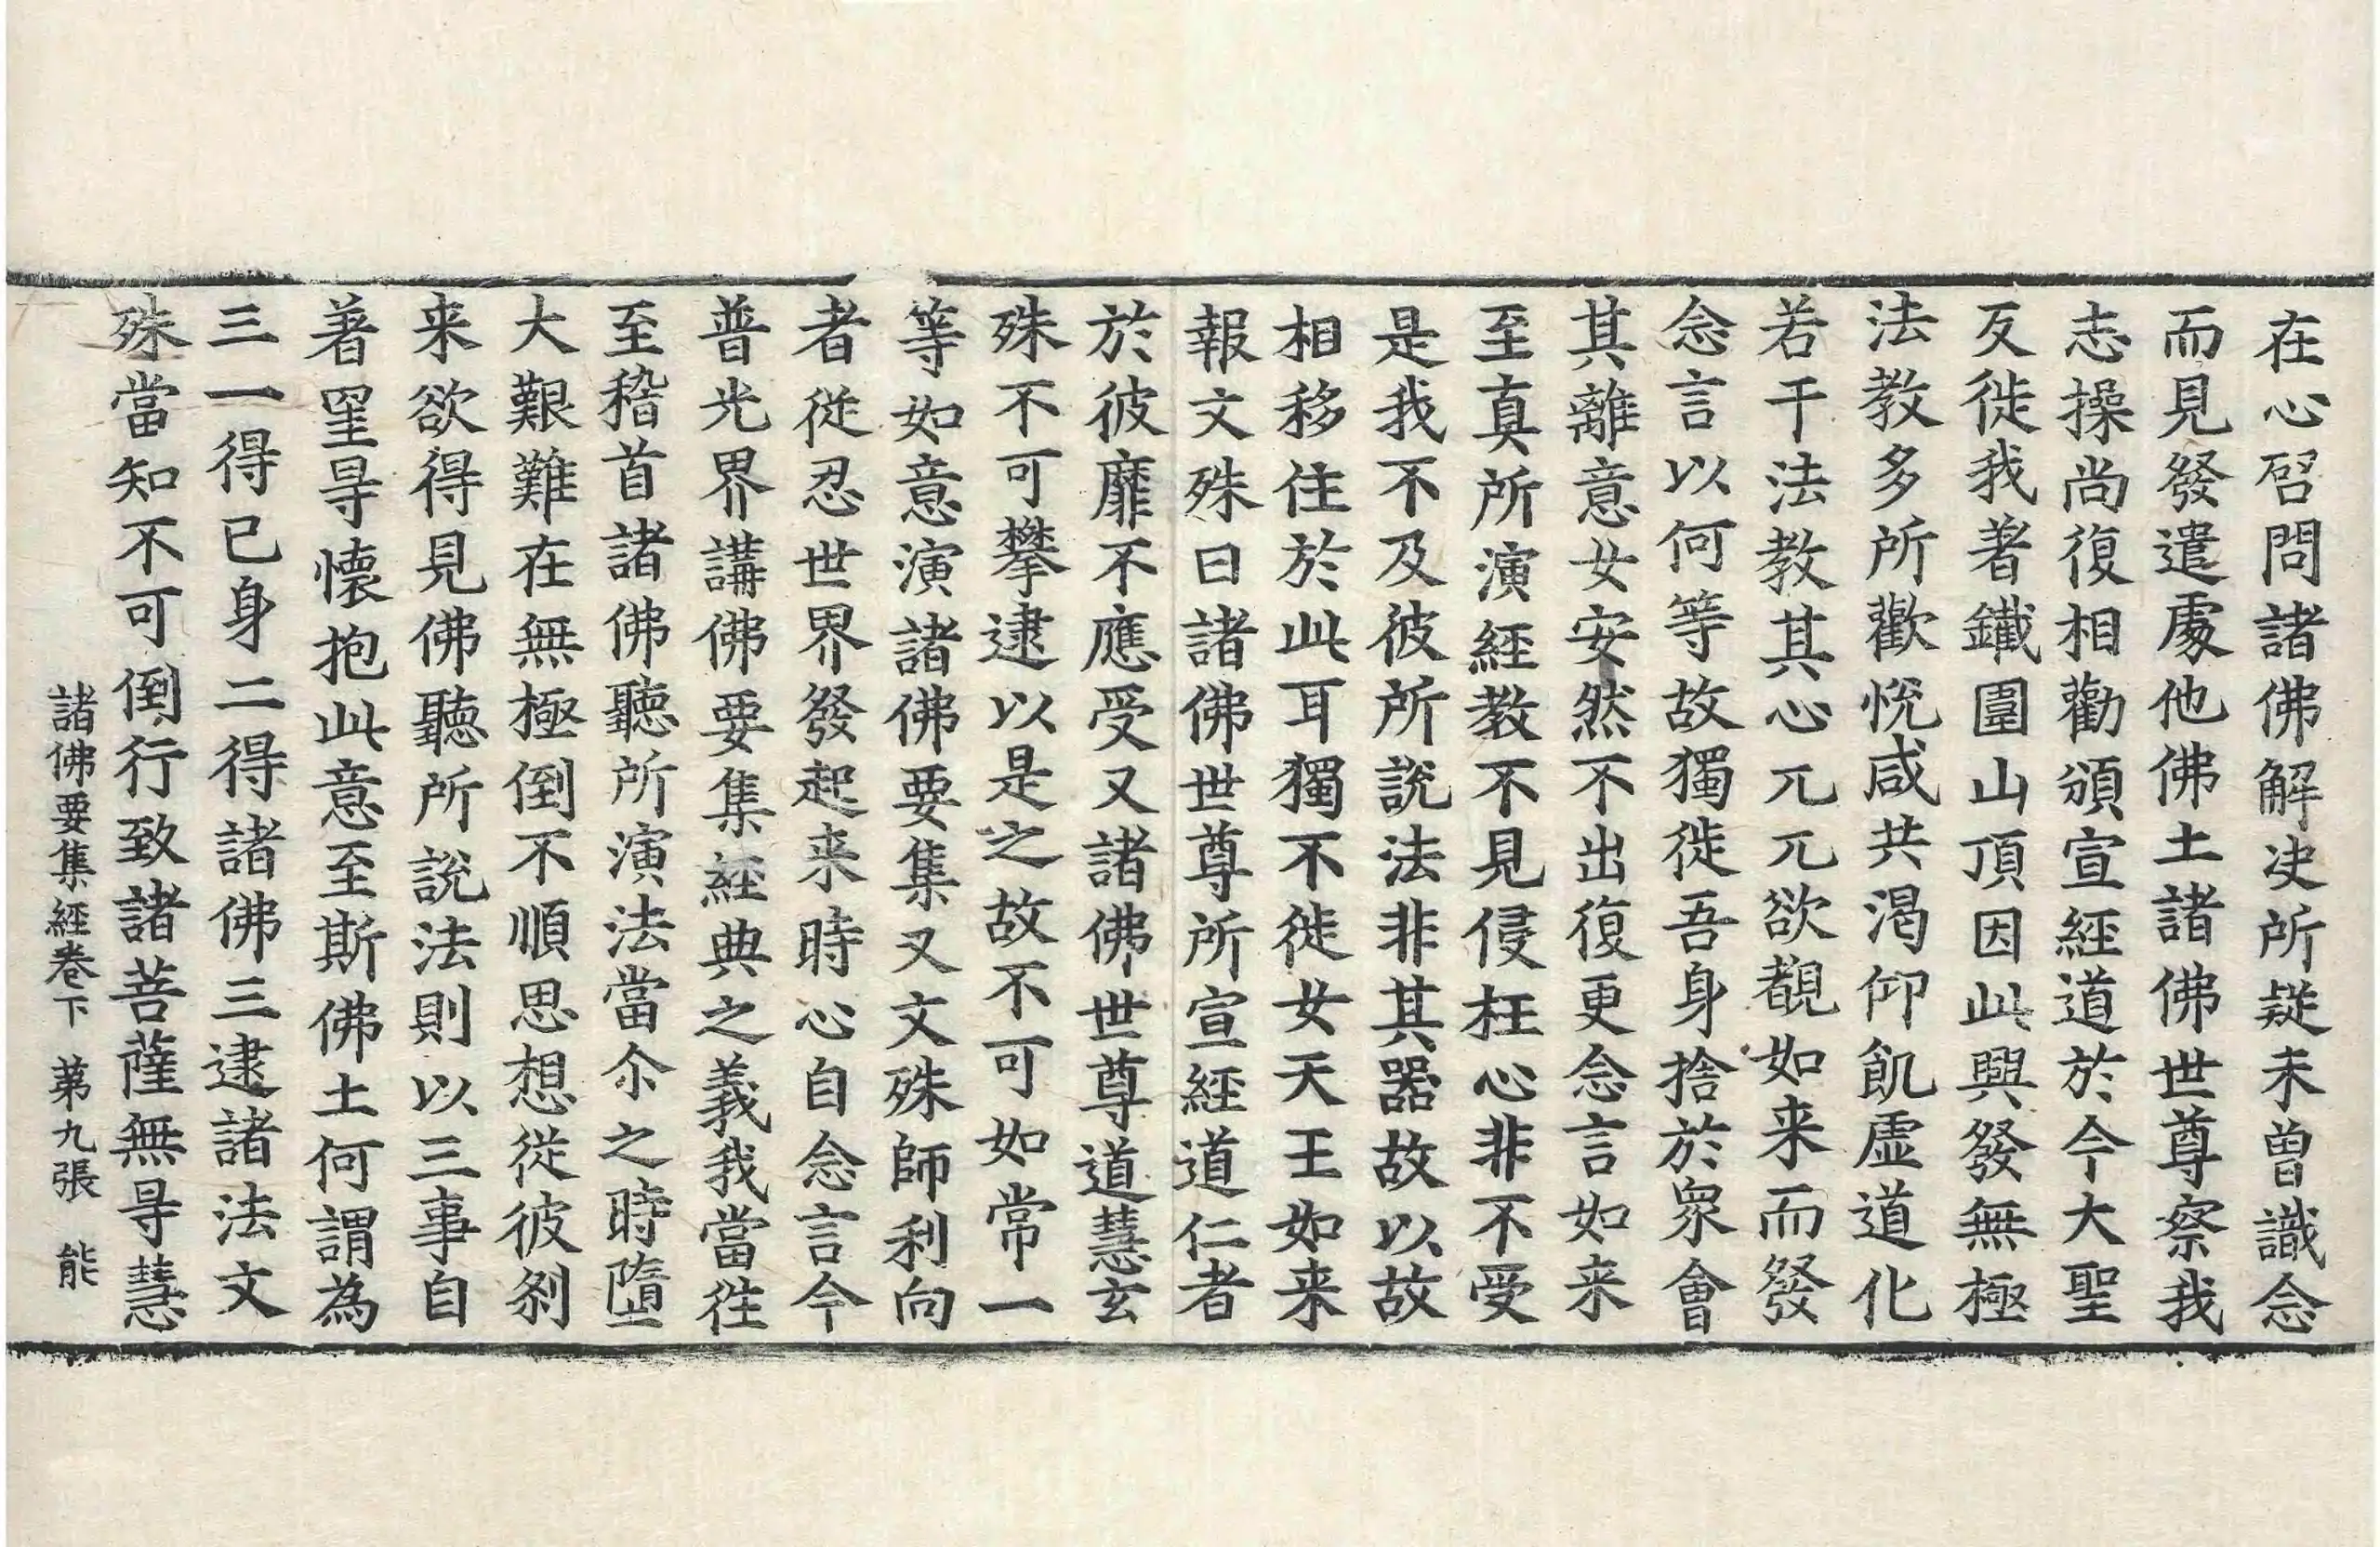 在心啓問諸佛解决所疑未曾識念
而見發遣處他佛土諸佛世尊察我
志操尚復相勸頒宣經道於今大聖
反徙我著鐵圍山頂因此興發無極
法教多所歡悅咸共渴仰飢虛道化
若干法教其心兀兀欲覩如来而發
念言以何等故獨徙吾身捨於眾會
其離意女安然不出復更念言如来
至真所演經教不見侵枉心非不受
是我不及彼所說法非其器故以故
相移住於此耳獨不徙女天王如来
報文殊曰諸佛世尊所宣經道仁者
於彼靡不應受又諸佛世尊道慧玄
殊不可攀逮以是之故不可如常一
等如意演諸佛要集又文殊師利向
者從忍世界發起来時心自念言今
普光界講佛要集經典之義我當往
至稽首諸佛聽所演法當尒之時墮
大艱難在無極倒不順思想從彼剎
来欲得見佛聽所說法則以三事自
著罣㝵懷抱此意至斯佛土何謂為
三一得已身二得諸佛三逮諸法文
殊當知不可倒行致諸菩薩無㝵慧
諸佛要集經卷下 第九張 能